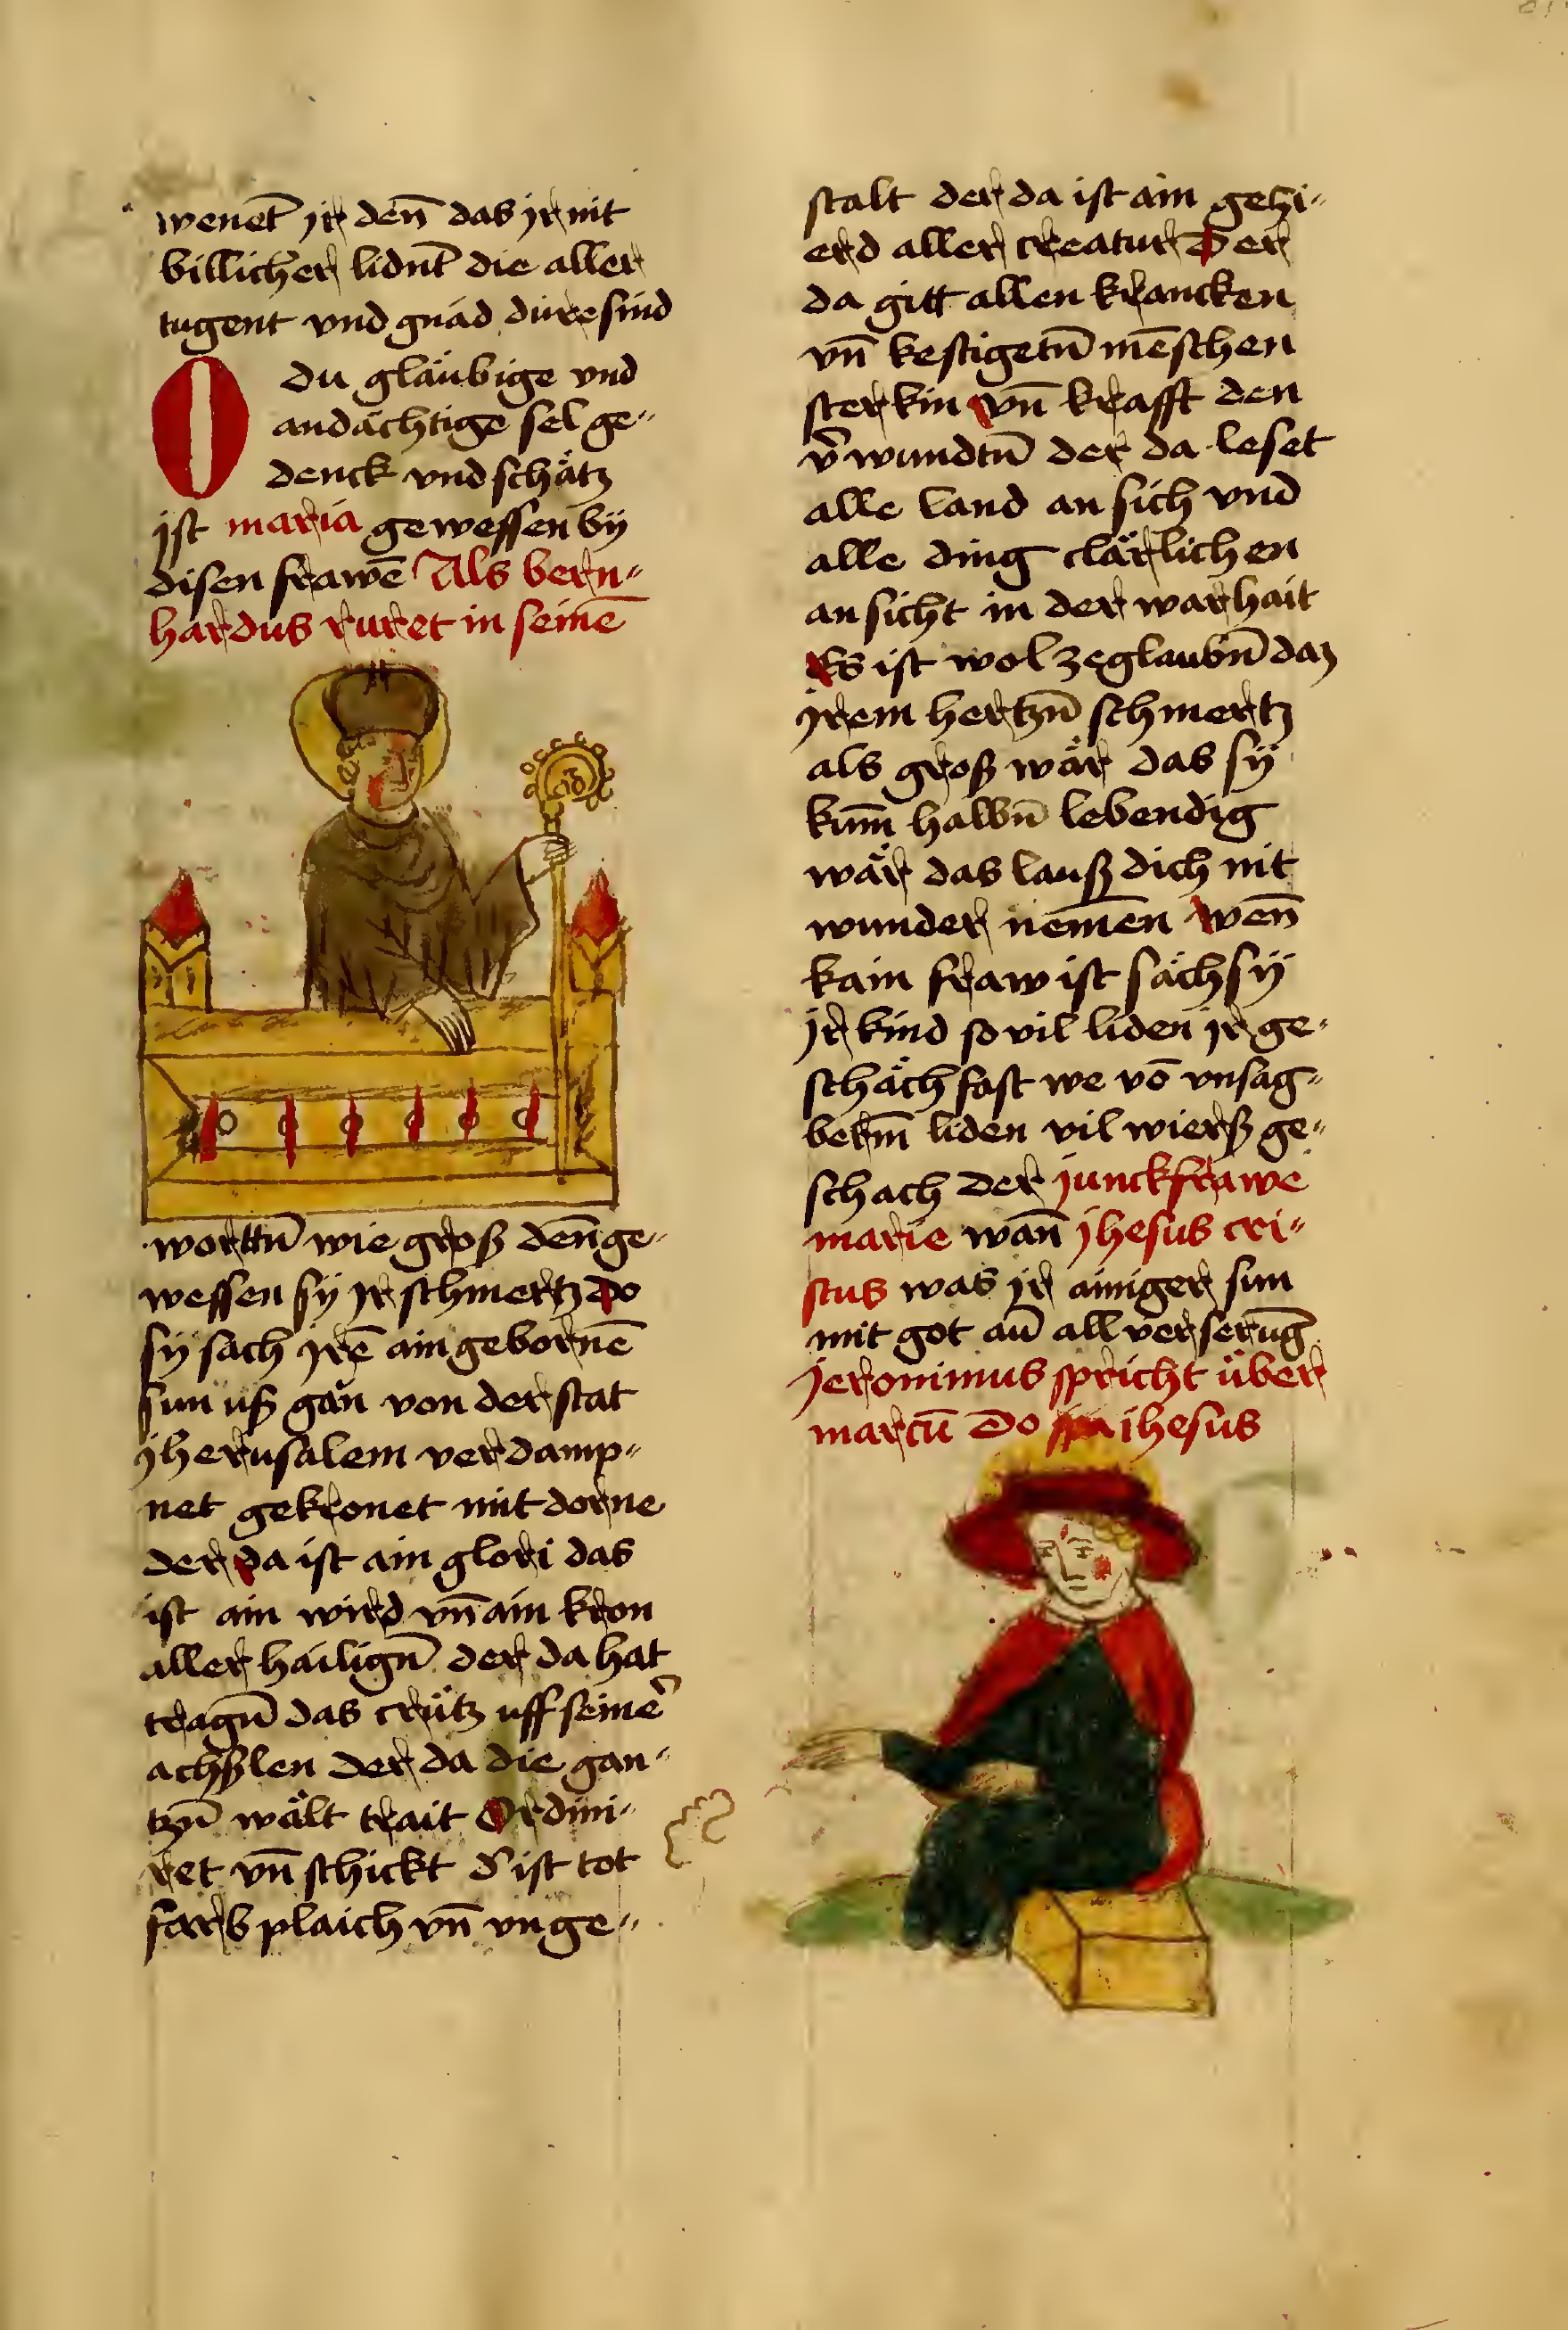 wenet̄ jr den̄ das jr nit
billicher lidnt̄ die aller
tugent vnd gnad düre sind
O du gläubige vnd
andächtige sel ge⸗
denck vnd schätz
jst maria gewessen bÿ
disen frawē Als bern⸗
hardus ruret in seinē
worttn̄ wie groß den̄ ge⸗
wessen sÿ jr schmertz do
sÿ sach jrē ain gebornē
sun uß gän von der stat
jherusalem verdamp⸗
net gekronet mit dorne
der da ist ain glori das
ist ain wird vn̄ ain kron
aller hailign̄ der da hat
tragn̄ das crütz uff seine᷑
achßlen der da die gan⸗
tzn̄ wält trait Ordini⸗
ret vn̄ schickt d᷑ ist tot
farb plaich vn̄ vnge⸗
stalt der da ist ain gehi⸗
erd aller creatur Der
da gitt allen krancken
vn̄ kestigetn̄ mēschen
sterkin vn̄ krafft den
v᷑wundtn̄ der da leset
alle land an sich vnd
alle ding clärlichen
an sicht in der warhait
Es ist wol ze glaubn̄ daz
jrem hertzn̄ schmertz
als groß wär das sÿ
kum̄ halbn̄ lebendig
wär das lauß dich nit
wunder nemen wen̄
kain fraw ist säch sÿ
jr kind so vil liden jr ge⸗
schäch fast we vō vnsag⸗
berm̄ liden vil wierß ge⸗
schach der junckfrawe
marie wan̄ jhesus cri⸗
stus was jr ainiger sun
mit got an̄ all verseruḡ
jeronimus spricht über
marcū Do jhesus